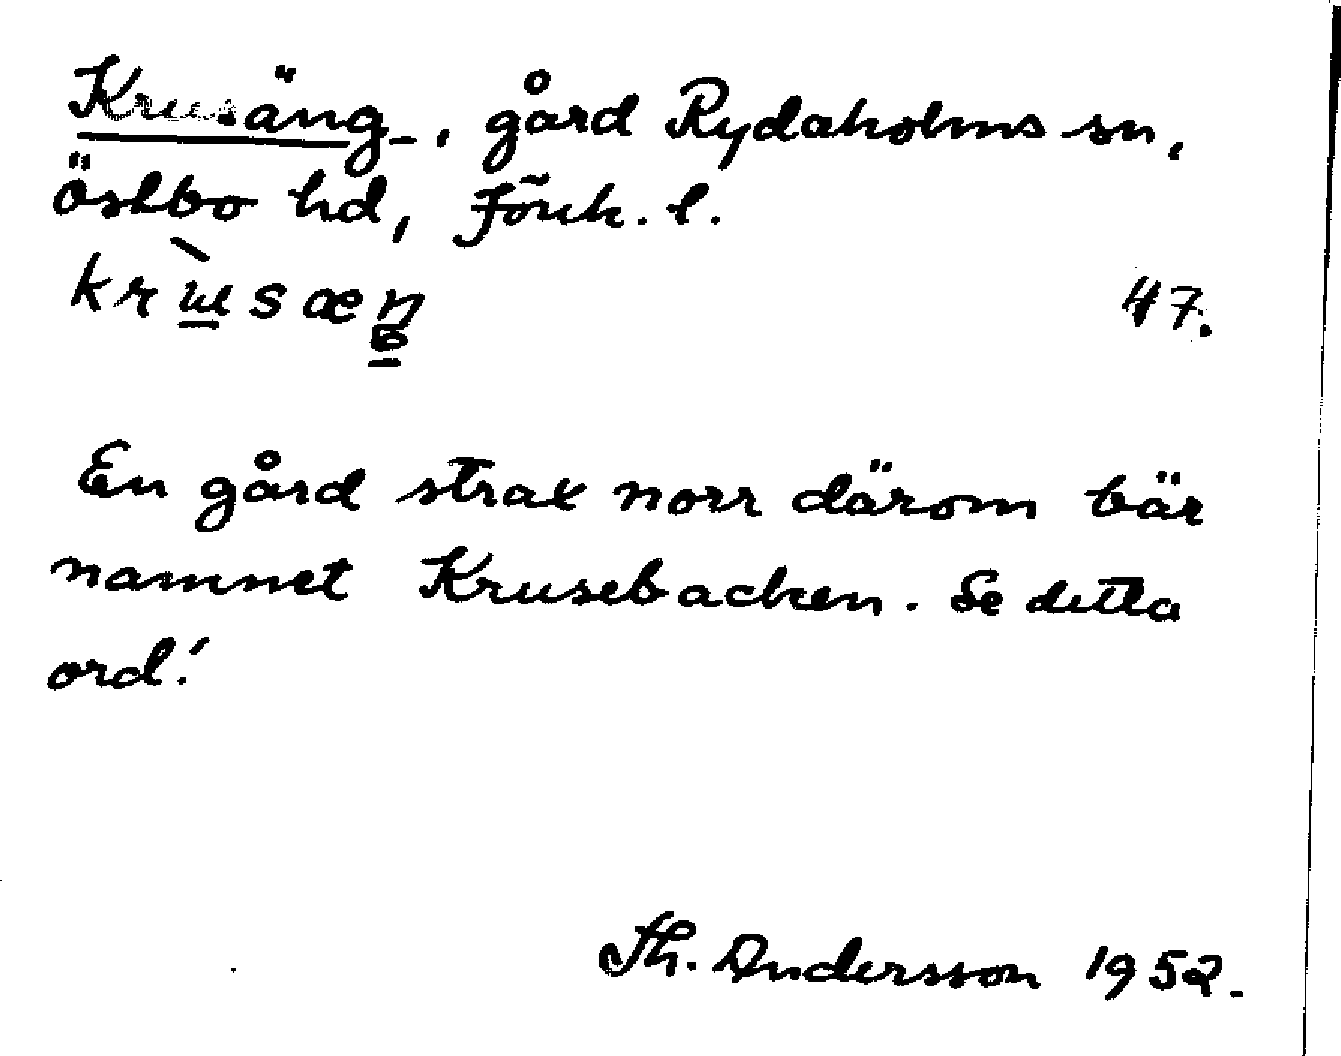 Krusäng, gård Rydaholms sn,
Östbo hd, Jönk. l.
47.
En gård strax norr därom bär
namnet Krusebacken. Se detta
ord!
Th. Andersson 1952.